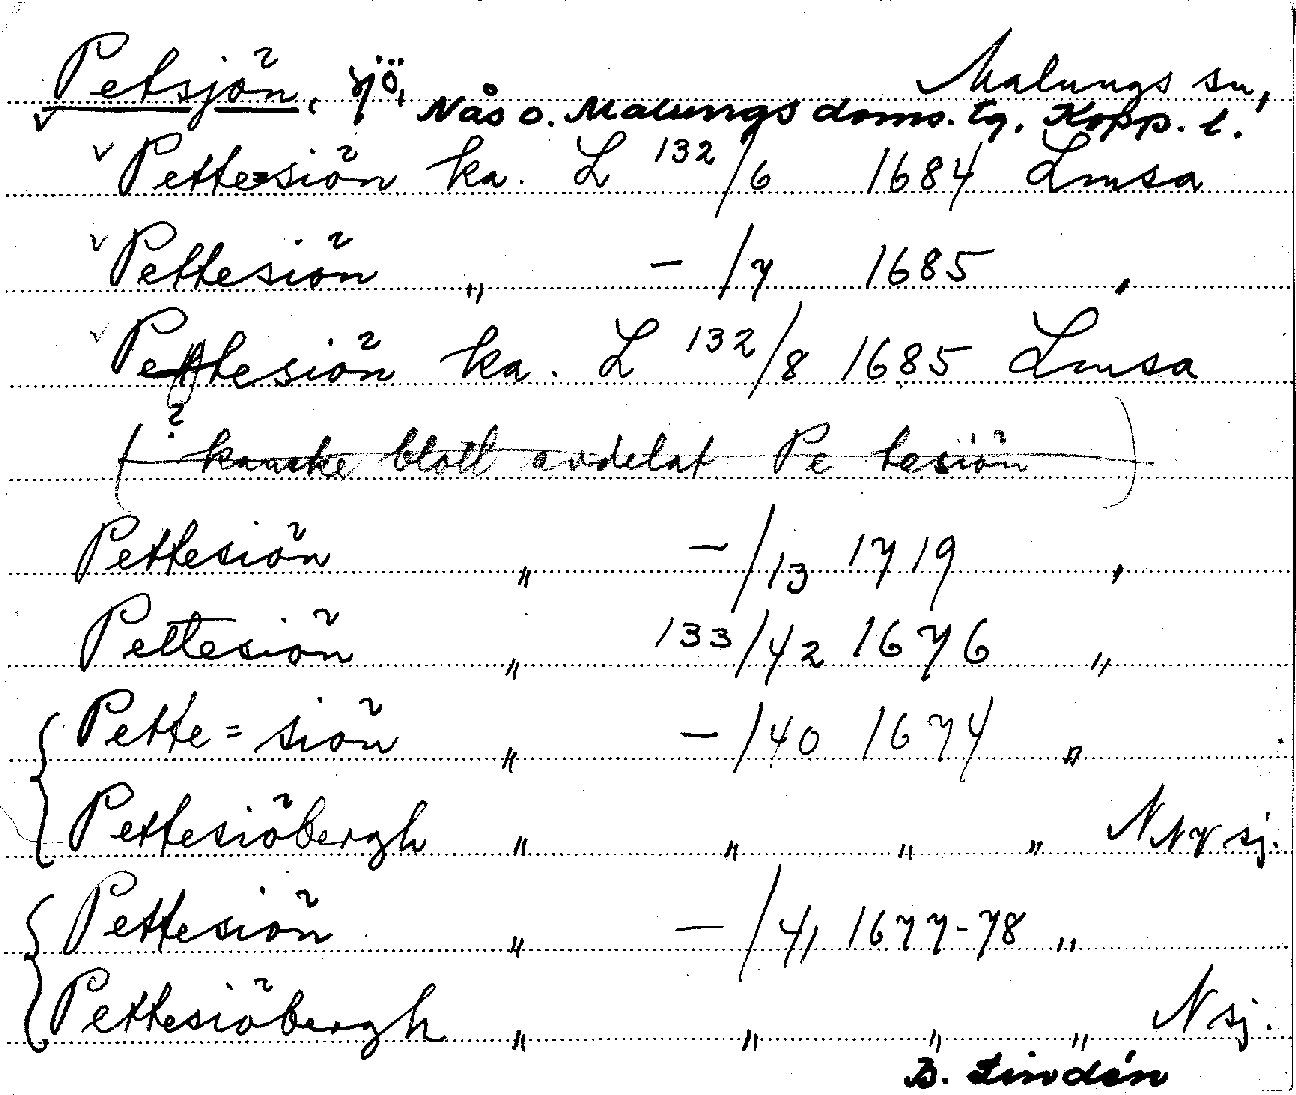 Petsjön, sjö, Malungs sn,
Nås o. Malungs doms. tg. Kopp. l.
v Pettesiön ka. L 132/6 1684 Lmsa
v Pettesiön „ —/7 1685 „
v Pettesiön ka. L 132/8 1685 Lmsa
?
( kanske blott avdelat Pe tesiön )
Pettesiön „ —/13 1719 „
Pettesiön „ 133/42 1676 „
Pette=siön „ —/40 1674 „
Pettesiöbergh „ „ „ „ N sj.
Pettesiön „ —/41 1677-78 „
Pettesiöbergh „ „ „ „ N sj.
B. Lindén